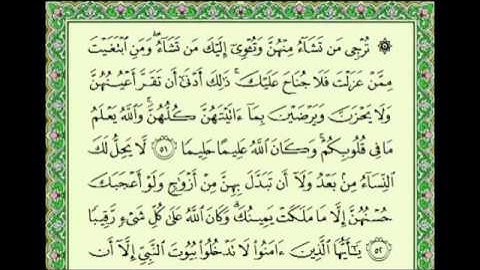 ۞ تُرْجِى مَن تَشَآءُ مِنْهُنَّ وَتُـْٔوِىٓ إِلَيْكَ مَن تَشَآءُ ۖ وَمَنِ ٱبْتَغَيْتَ
مِمَّنْ عَزَلْتَ فَلَا جُنَاحَ عَلَيْكَ ۚ ذَٰلِكَ أَدْنَىٰٓ أَن تَقَرَّ أَعْيُنُهُنَّ
وَلَا يَحْزَنَّ وَيَرْضَيْنَ بِمَآ ءَاتَيْتَهُنَّ كُلُّهُنَّ ۚ وَٱللَّهُ يَعْلَمُ
مَا فِى قُلُوبِكُمْ ۚ وَكَانَ ٱللَّهُ عَلِيمًا حَلِيمًا ۝٥١ لَّا يَحِلُّ لَكَ
ٱلنِّسَآءُ مِنۢ بَعْدُ وَلَآ أَن تَبَدَّلَ بِهِنَّ مِنْ أَزْوَٰجٍ وَلَوْ أَعْجَبَكَ
حُسْنُهُنَّ إِلَّا مَا مَلَكَتْ يَمِينُكَ ۗ وَكَانَ ٱللَّهُ عَلَىٰ كُلِّ شَىْءٍ رَّقِيبًا
۝٥٢ يَـٰٓأَيُّهَا ٱلَّذِينَ ءَامَنُوا۟ لَا تَدْخُلُوا۟ بُيُوتَ ٱلنَّبِىِّ إِلَّآ أَن